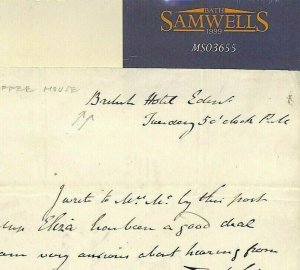 BATH
SAMWELLS
1999
MS03655
FFEE HOUSE
British Hotel Edinr
Tuesday 5 o'clock P.M
I write to Mrs Mc by this post
Eliza has been a good deal
am very anxious about hearing from